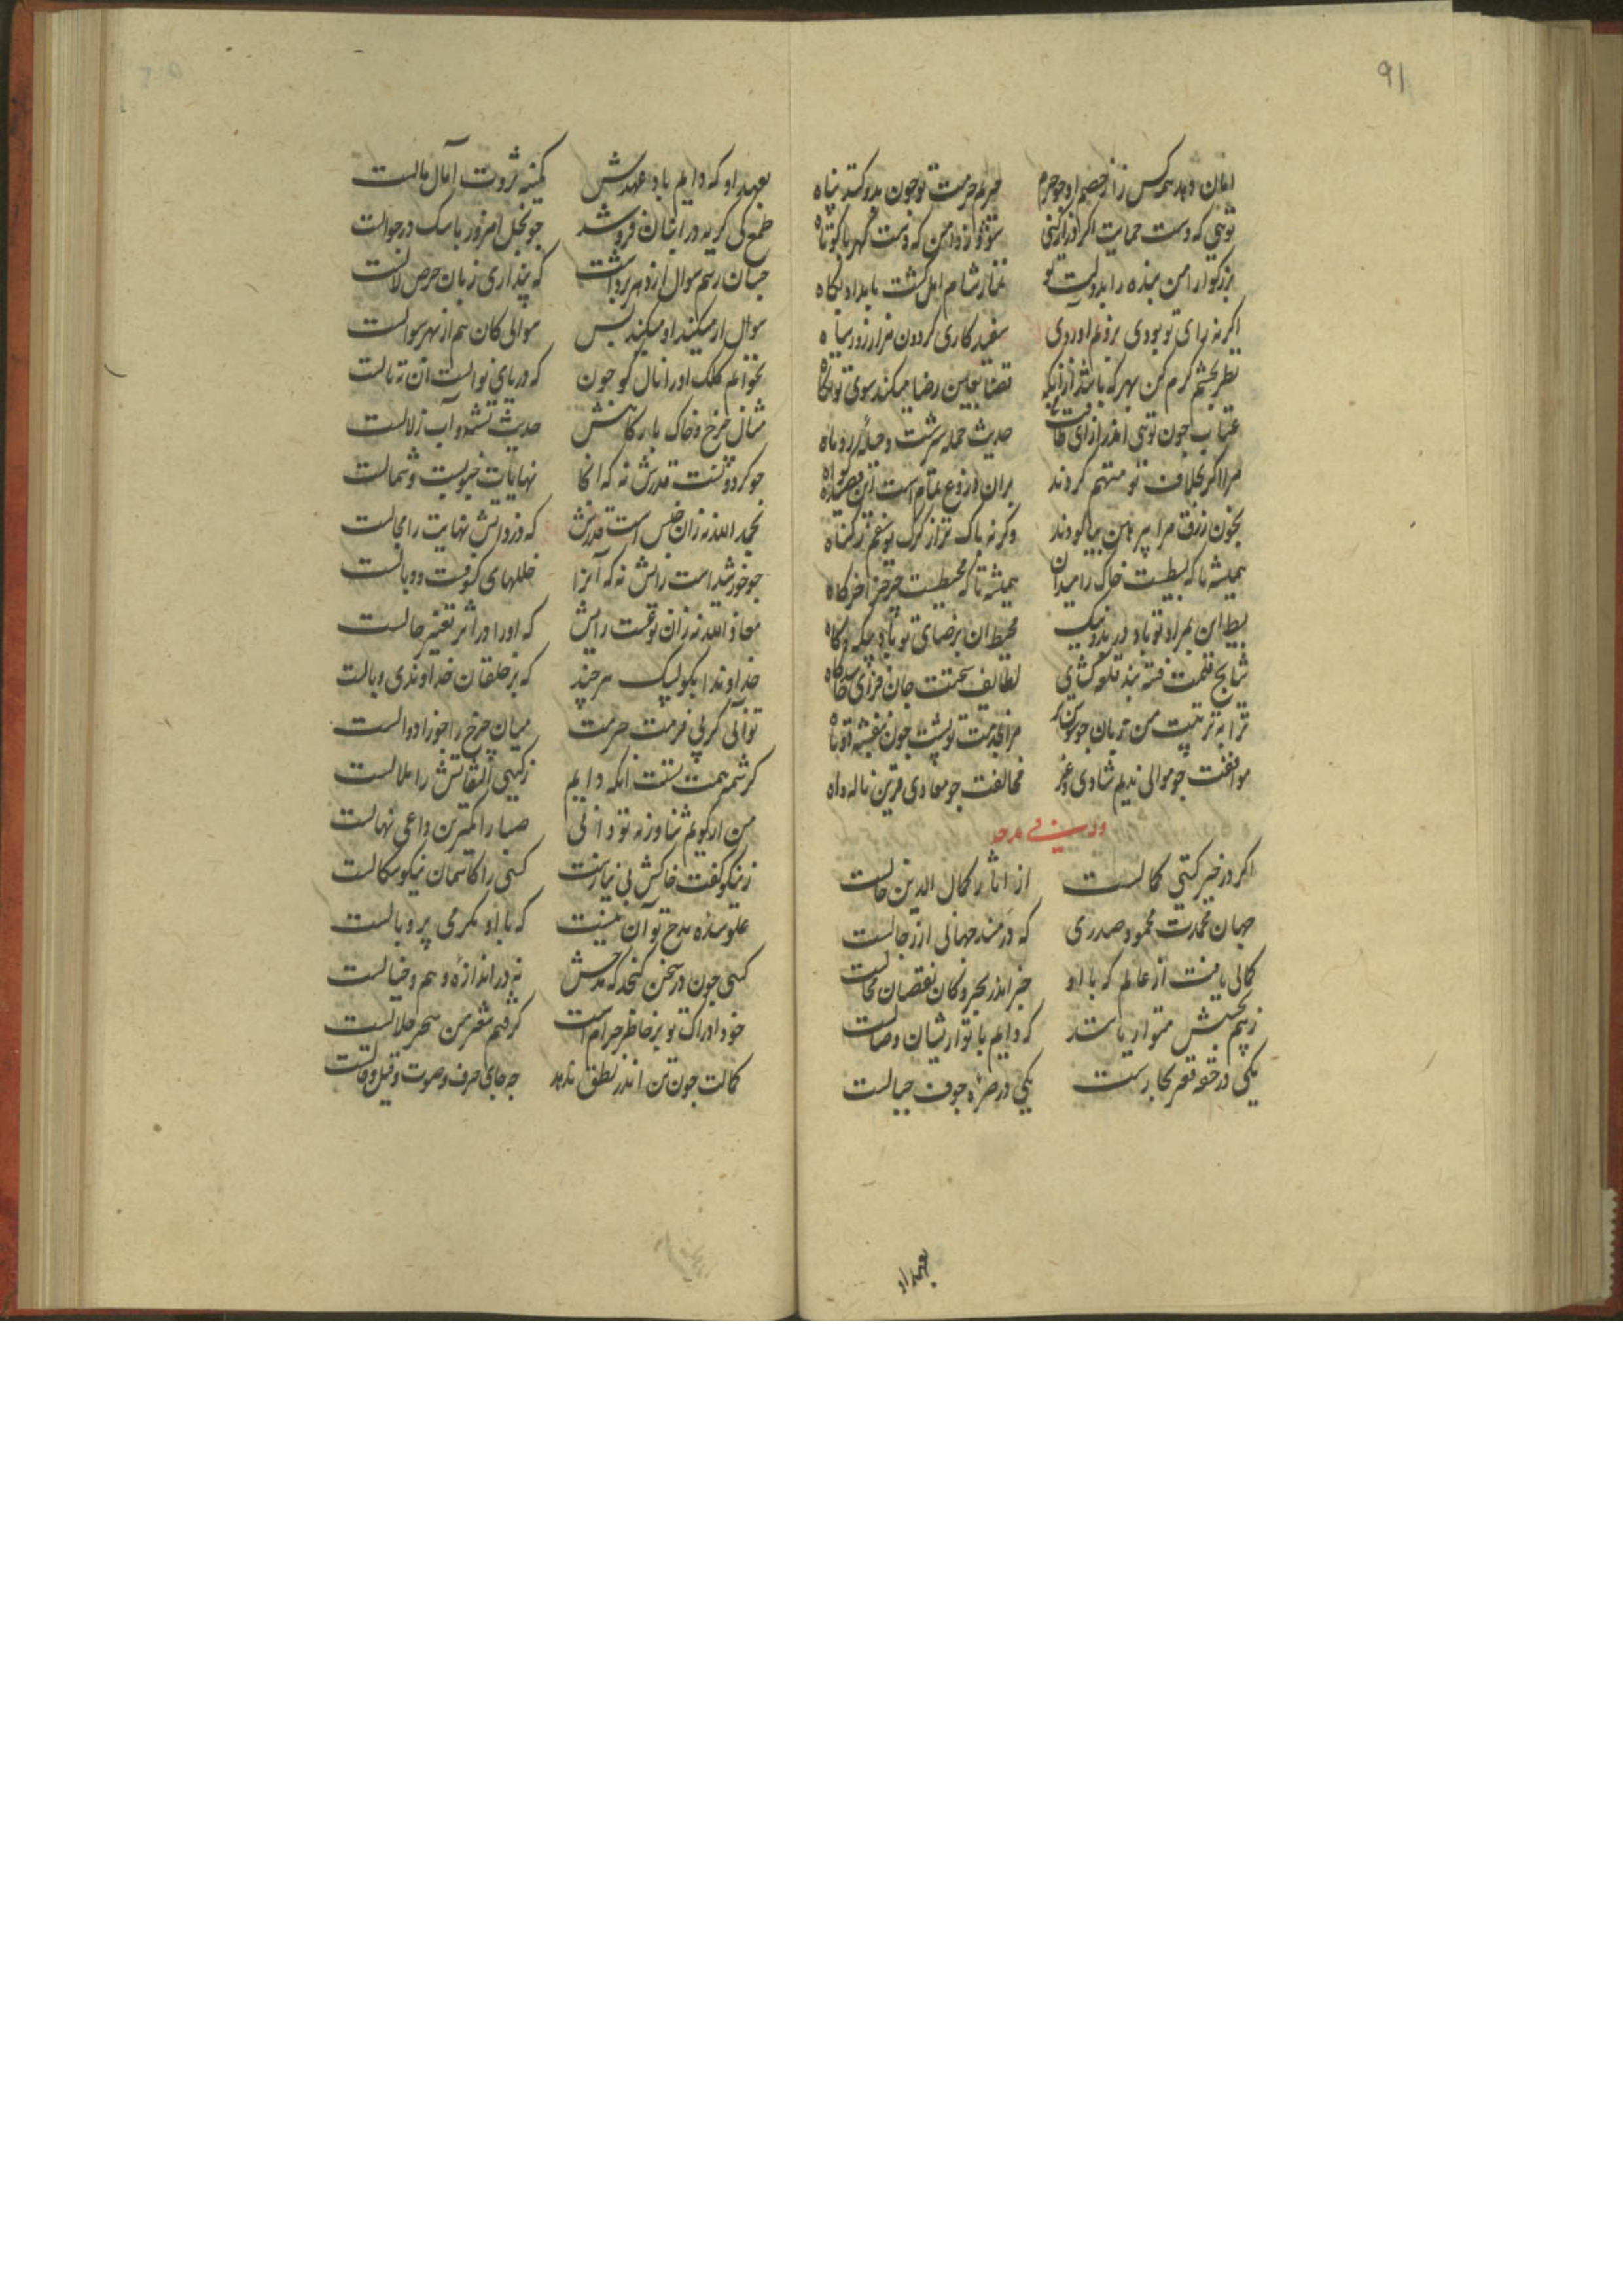 91
امان دهد همه کس را ز خصم او چو حرم حریم حرمت تو چون بدو کند پناه
تویی که دست حمایت اگر دراز کنی شود ز دامن که دست کهربا کوتاه
بزرگوارا من بنده را بدولت تو نماز شام امل گشت بامداد پگاه
اگرنه رای تو بودی برویم آوردی سفید کاری گردون هزار روز سیاه
نظر بچشم کرم کن بهر که باشد از آنک قضا بعین رضا میکند سوی تو نگاه
عتاب چون تویی اندر ازای طاقت من حدیث حمله شیرست و حیله روباه
مرا اگر بخلاف تو متهم کردند بران دروغ تمامست این قصیده گواه
بخون زرق مرا پیرهن بیالودند وگرنه پاک تر از گرگ یوسفم ز گناه
همیشه تا که بسیطست خاک را میدان همیشه تا که محیطست چرخ را خرگاه
بسیط این بمراد تو باد در بد و نیک محیط آن برضای تو باد بیگه و گاه
نتایج قلمت فتنه بند قلعه گشای لطایف سخنت جان فزای
ترا به تربیت من زبان چو سوسن تر مرا بخدمت تو پشت چون بنفشه دوتاه
موافقت چو موالی ندیم شادی و عز مخالفت چو معادی قرین ناله و آه
وله فی مدحه
اگر در حیز گیتی کمالست از آثار کمال الدین خالست
جهان محمدت محمود صدری که در مسند جهانی از رجالست
کمالی یافتست از عالم که با او جز اندر بحر و کان نقصان محالست
ز بیم بخشش متواریانند که دایم با توارشان وصالست
یکی در حقه قعر بحارست یکی در صره جوف جبالست
بعهد او
بعهد او که دایم باد عهدش کمینه ثروت آمال مالست
طمع کی گربه در انبان فروشد چو بخل امروز با سگ در جوالست
چنان رسم سوال از دهر برداشت که پنداری زبان حرص لالست
سوال ار میکند او میکند بس سوالی کان هم از بهر سوالست
نخوانم کلک او را نال گو چون که دریای نوالست آن نه نالست
مثال چرخ و خاک بارگاهش حدیث تشنه و آب زلالست
چو گردونست قدرش نه که آنجا نهایات جنوبست و شمالست
بحمد الله نه زان جنس است قدرش که در ذاتش نهایت را مجالست
چو خورشیدست رایش نه که آنرا خللهای کسوفست و وبالست
معاذ الله نه زان نوعست رایش که او را در اثر تغییر حالست
خداوندا نگویم لیک هر چند که بر خلقان خداوندی وبالست
تو آنی کز پی فرمت حرمت میان چرخ را جوزا دوالست
کرشمه همت تست آنکه دایم ز گیتی التفاتش را ملالست
من ار گویم ثنا ورنه تو دانی صبا را کمترین داعی نهالست
ز نیکو گفت خاکش بی نیازست کسی را کاسمان نیکو سگالست
علو سدره مدح تو آن نیست که با او مکرمی پر و بالست
کسی چون در سخن گنجد که مدحش نه در اندازه وهم و خیالست
خود ادراک تو بر خاطر حرام است گرفتم شعر من سحر حلالست
کمالت چون تن اندر نطق ندهد چه جای حرف و صوت و قیل و قالست